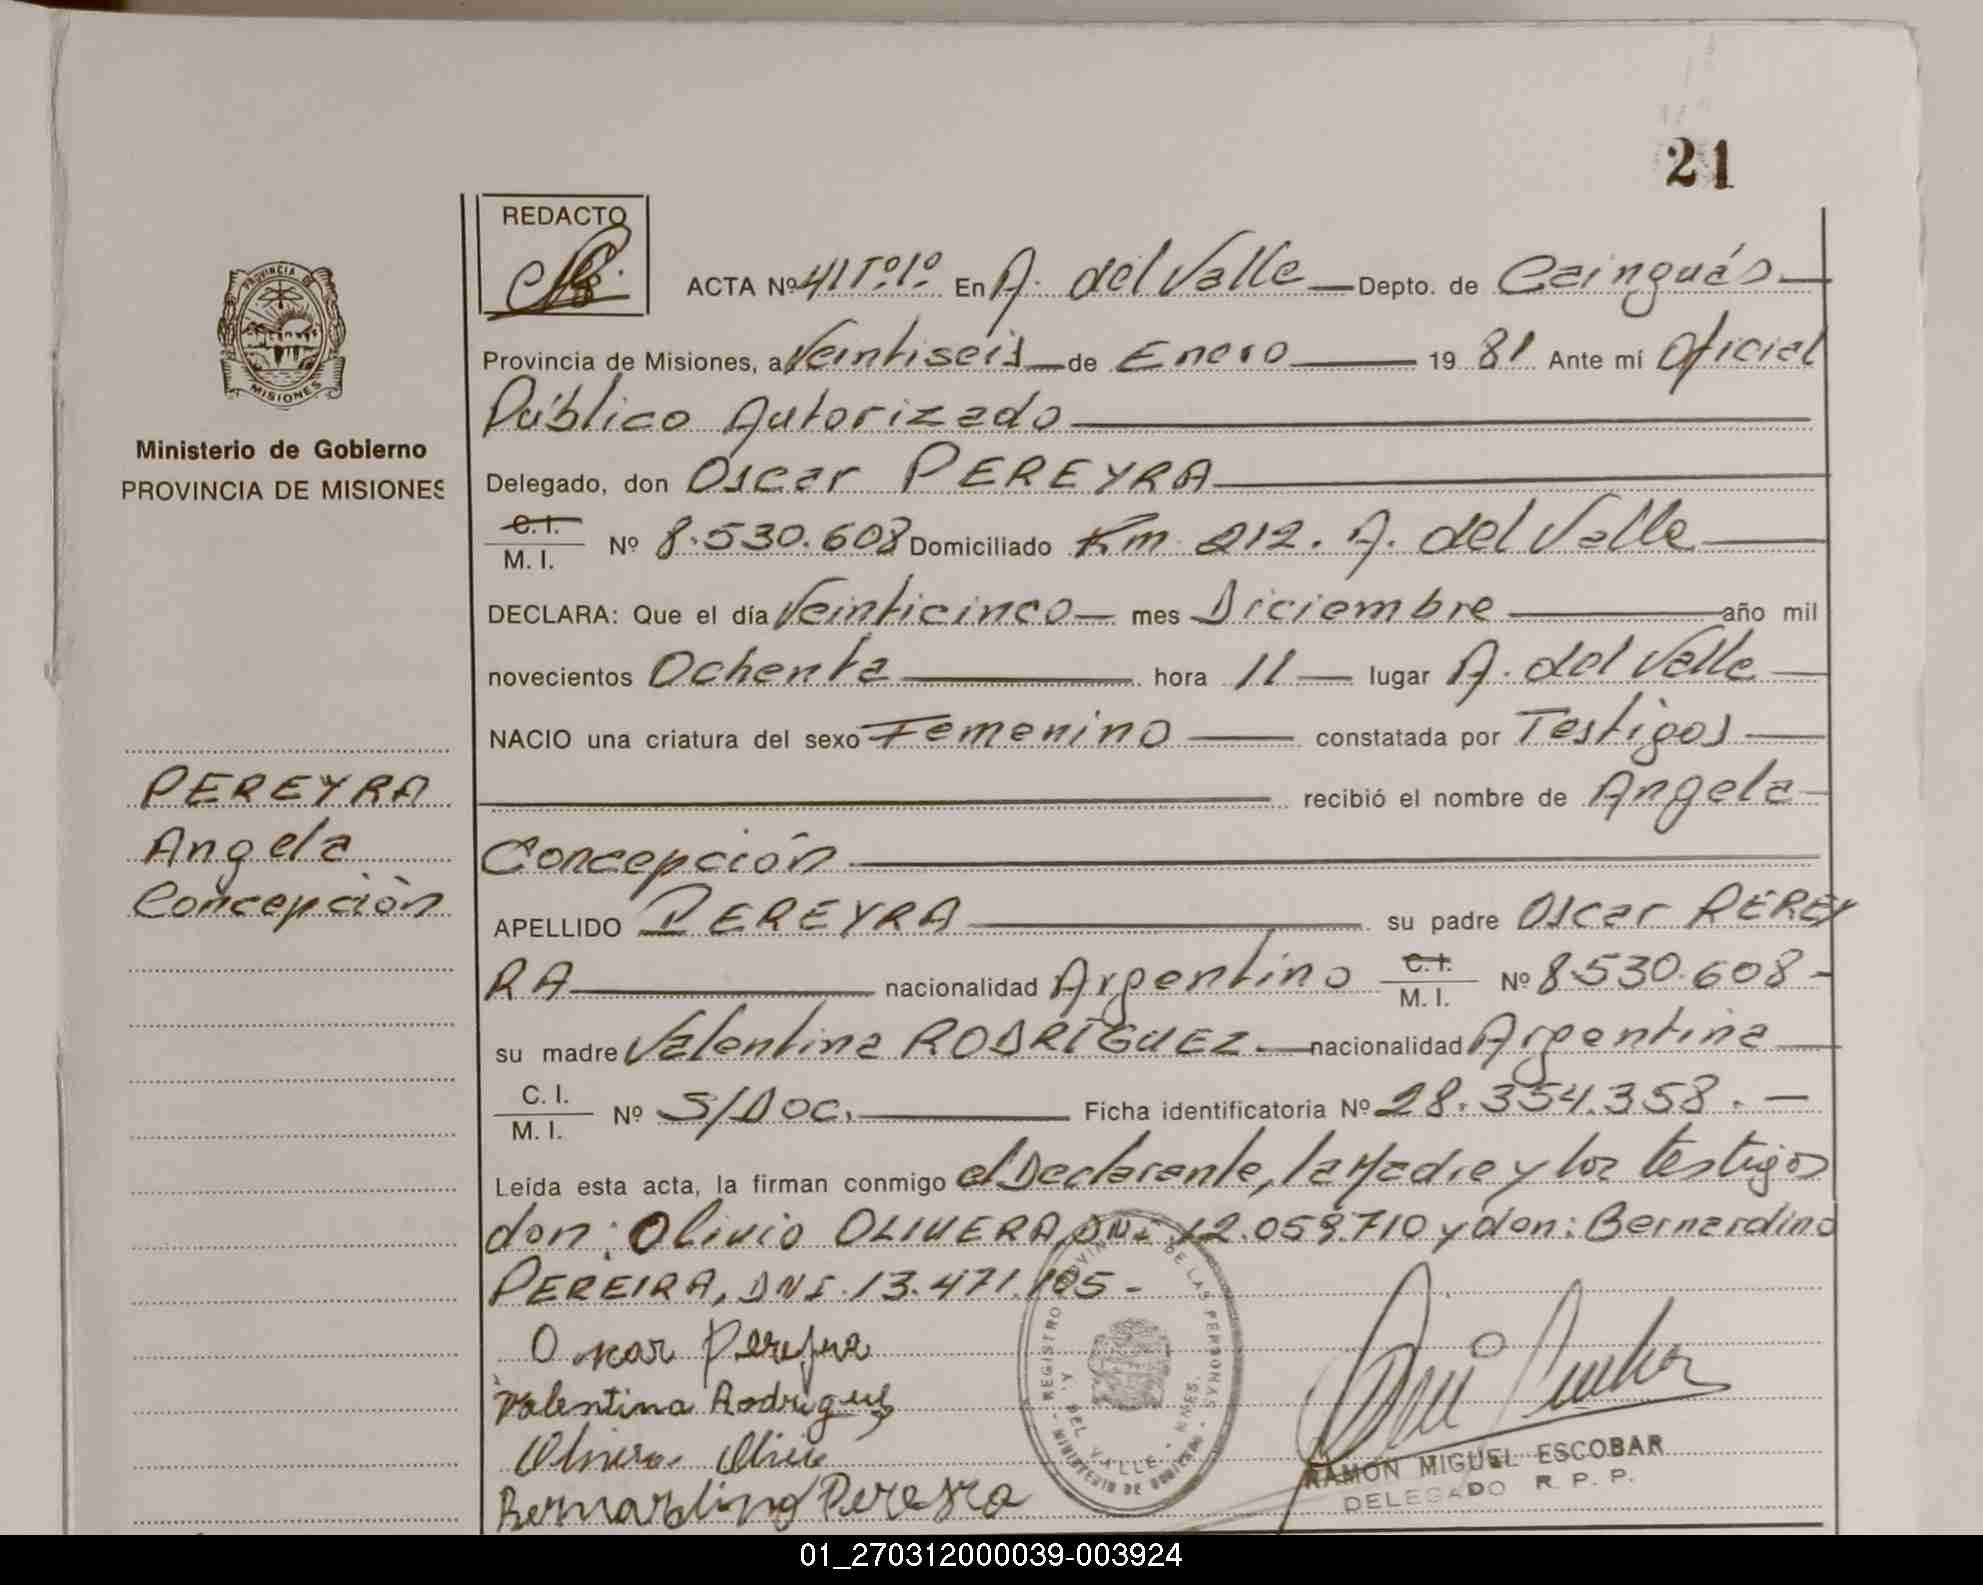 21
REDACTO
ACTA Nº 41 Tº1º En A. del Valle — Depto. de Cainguás —
PROVINCIA DE
MISIONES
Provincia de Misiones, a Veintiseis — de Enero — 19 81 Ante mí Oficial
Público Autorizado
Ministerio de Gobierno
PROVINCIA DE MISIONES
Delegado, don Oscar PEREYRA
C. I.
M. I. Nº 8.530.608 Domiciliado Km 212. A. del Valle
DECLARA: Que el día Veinticinco — mes Diciembre — año mil
novecientos Ochenta — hora 11 — lugar A. del Valle —
NACIO una criatura del sexo Femenino — constatada por Testigos —
— recibió el nombre de Angela —
Concepción
PEREYRA
Angela
Concepción
APELLIDO PEREYRA — su padre Oscar PEREY
RA — nacionalidad Argentino C. I. M. I. Nº 8.530.608 -
su madre Valentina RODRÍGUEZ. — nacionalidad Argentina —
C. I.
M. I. Nº S/Doc. — Ficha identificatoria Nº 28.354.358. —
Leída esta acta, la firman conmigo el Declarante, la Madre y los testigos
don: Olivio OLIVERA, DNI 12.059.710 y don: Bernardino
PEREIRA, DNI. 13.471.105 -
Oscar Pereyra
Valentina Rodrigues
Olivera Olivio
Bernardino Pereyra
REGISTRO PROVINCIAL DE LAS PERSONAS
A. DEL VALLE - MNES.
MINISTERIO DE GOBIERNO
RAMON MIGUEL ESCOBAR
DELEGADO R. P. P.
01_270312000039-003924